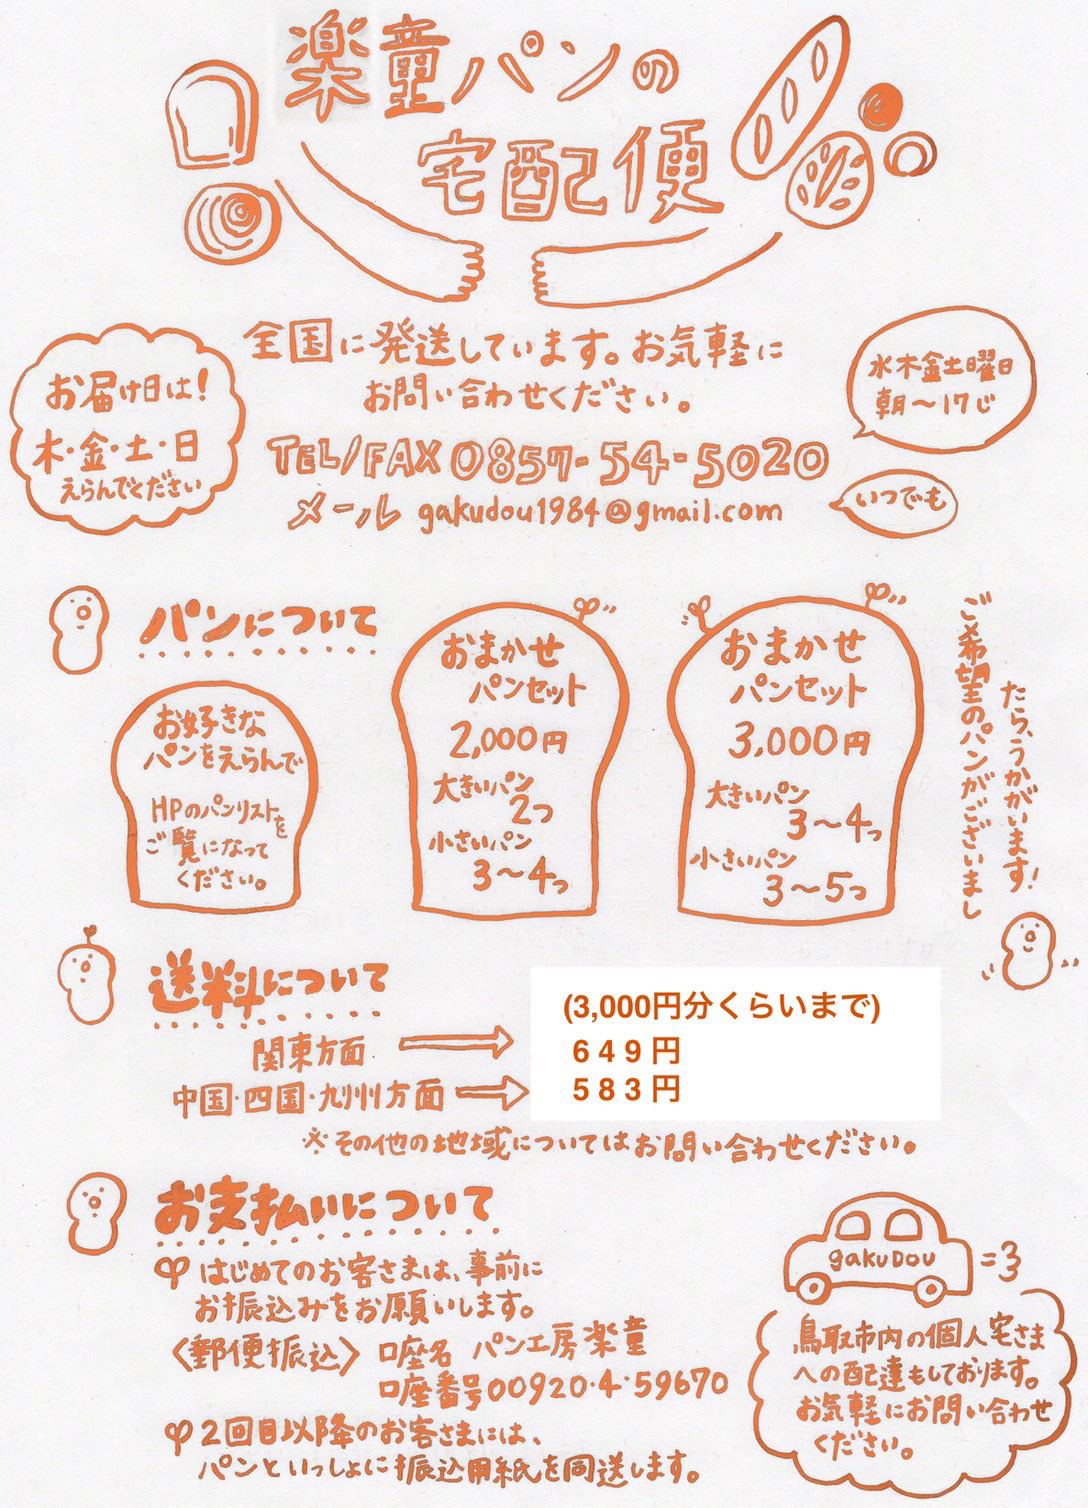 楽童パンの
宅配便
全国に発送しています。お気軽に
お問い合わせください。
お届け日は!
木・金・土・日
えらんでください
水木金土曜日
朝〜17じ
TEL/FAX 0857-54-5020
メール gakudou1984@gmail.com
いつでも
パンについて
お好きな
パンをえらんで
HPのパンリストを
ご覧になって
ください。
おまかせ
パンセット
2,000円
大きいパン
2つ
小さいパン
3〜4つ
おまかせ
パンセット
3,000円
大きいパン
3〜4つ
小さいパン
3〜5つ
ご希望のパンがございまし
たら、うかがいます!
送料について
(3,000円分くらいまで)
関東方面
649円
中国・四国・九州方面
583円
※その他の地域についてはお問い合わせください。
お支払いについて
はじめてのお客さまは、事前に
お振込みをお願いします。
〈郵便振込〉 口座名 パン工房楽童
口座番号00920・4・59670
2回目以降のお客さまには、
パンといっしょに振込用紙を同送します。
gakuDou
=3
鳥取市内の個人宅さま
への配達もしております。
お気軽にお問い合わせ
ください。